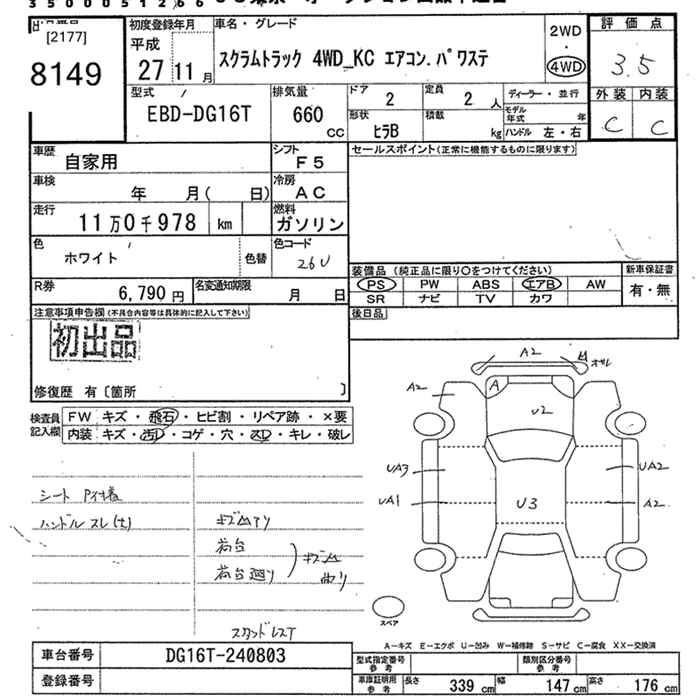 3 5 0 0 0 5 1 2
[2177]
8149
初度登録年月
平成
27 11 月
車名・グレード
スクラムトラック 4WD_KC エアコン.パワステ
2WD
・
4WD
評価点
3.5
外装 内装
C C
型式
EBD-DG16T
排気量
660 cc
ドア
2
定員
2 人
ディーラー・並行
モデル年式 年
形状
ヒラB
積載
kg
ハンドル 左・右
車歴
自家用
シフト
F5
セールスポイント(正常に機能するものに限ります)
車検
年 月( 日)
冷房
AC
走行
11万0千978 km
燃料
ガソリン
色
ホワイト
色替
色コード
26U
装備品 (純正品に限り○をつけてください)
新車保証書
PS PW ABS エアB AW
有・無
SR ナビ TV カワ
R券
6,790 円
名変通知期限
月 日
後日品
注意事項申告欄(不具合内容等は具体的に記入して下さい)
初出品
修復歴 有〔箇所 〕
検査員記入欄
FW キズ・飛石・ヒビ割・リペア跡・×要
内装 キズ・汚レ・コゲ・穴・スレ・キレ・破レ
A2
A2
A
U2
UA3
UA2
UA1
U3
A2
シート
ハンドルスレ(大)
荷台
荷台廻り
スペア
A-キズ E-エクボ U-凹み W-補修跡 S-サビ C-腐食 XX-交換済
車台番号
DG16T-240803
登録番号
型式指定番号 参考
類別区分番号 参考
車庫証明用 参考
長さ 339 cm
幅 147 cm
高さ 176 cm